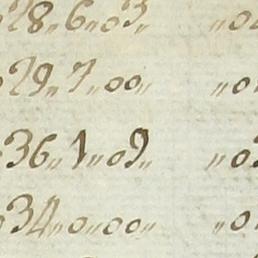 28„6„03„ „0
29„7„00„ „0
36„1„09„ „03
34„0„00„ „0